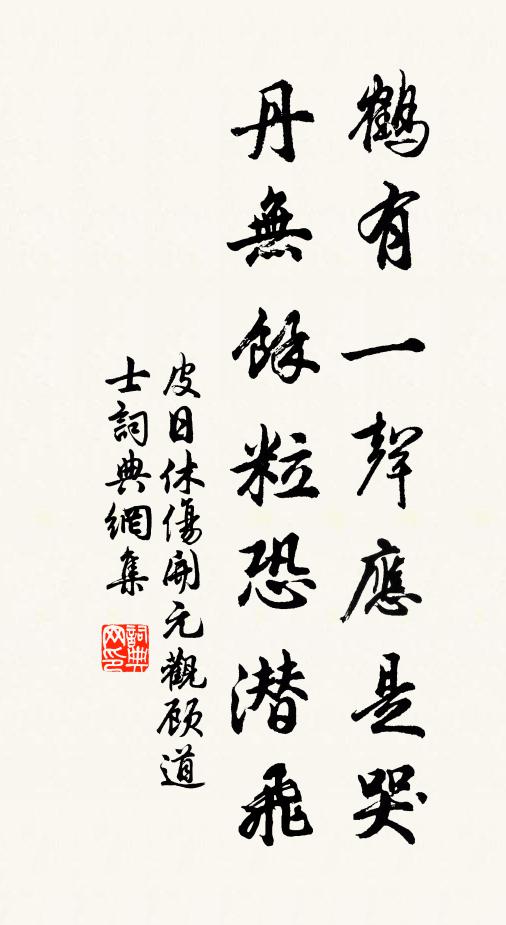 鶴有一聲應是哭
丹無餘粒恐潜飛
皮日休傷開元觀顧道
士詞典網集
詞典
网印